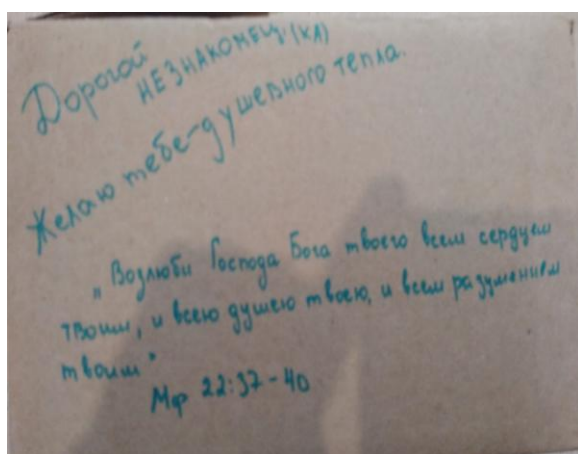 Дорогой
НЕЗНАКОМЕЦ.(КА)
Желаю тебе-душевного тепла.
„Возлюби Господа Бога твоего всем сердцем
твоим, и всею душею твоею, и всем разумением
твоим"
Мф 22:37-40